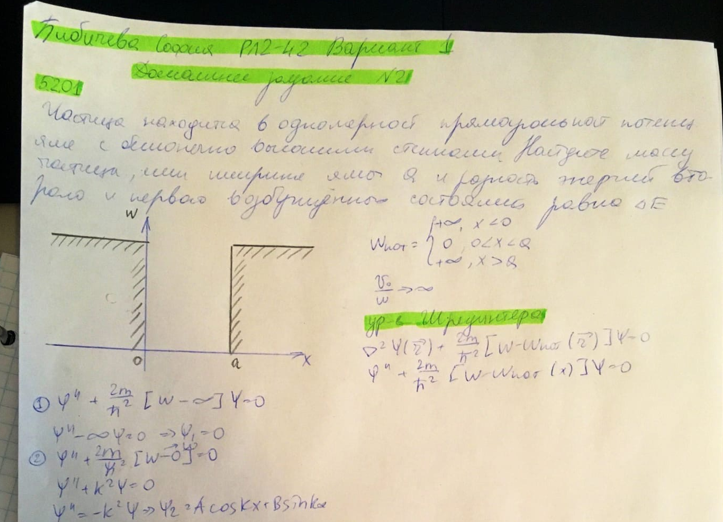 София РЛ2-42 Вариант 1
Домашнее задание №2
5201
Частица находится в одномерной прямоугольной потенц
яме с бесконечно высокими стенками Найдите массу
частицы, если ширина ямы a и разность энергий вто-
рого и первого возбуждённых состояний равна ΔE
W
0
a
x
Wпот = { +∞, x<0
0, 0<x<a
+∞, x>a
→∞
ур-е Шредингера
∇²Ψ(r⃗) + 2m/ħ² [W-Wпот(r⃗)]Ψ=0
Ψ'' + 2m/ħ² [W-Wпот(x)]Ψ=0
① Ψ'' + 2m/ħ² [W-∞]Ψ=0
Ψ''-∞Ψ=0 ⇒Ψ₁=0
② Ψ''+ 2m/ħ² [W-0]Ψ=0
Ψ''+k²Ψ=0
Ψ''=-k²Ψ⇒Ψ₂=Acoskx+Bsinkx